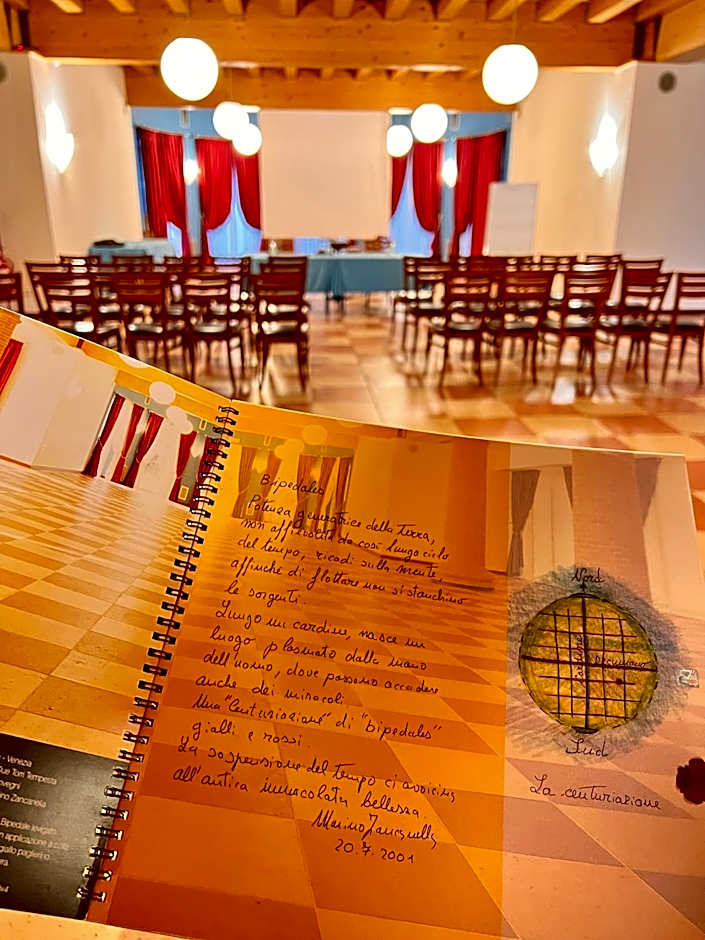 Bipedales
Potenza generatrice della terra,
non affievolita da così lungo ciclo
del tempo, ricadi sulla mente,
affinché di flottare non si stanchino
le sorgenti.
Lungo un cardine, nasce un
luogo plasmato dalla mano
dell'uomo, dove possono accadere
anche dei miracoli.
Una "Centuriazione" di "bipedales"
gialli e rossi.
La sospensione del tempo ci avvicina
all'antica immacolata bellezza.
Marino Zancanella
20.7.2001
Nord
decumano
Sud
La centuriazione
- Venezia
Due Torri Tempesta
Novegni
Zancanella
Bipedale levigato
n applicazione a colla
giallo paglierino